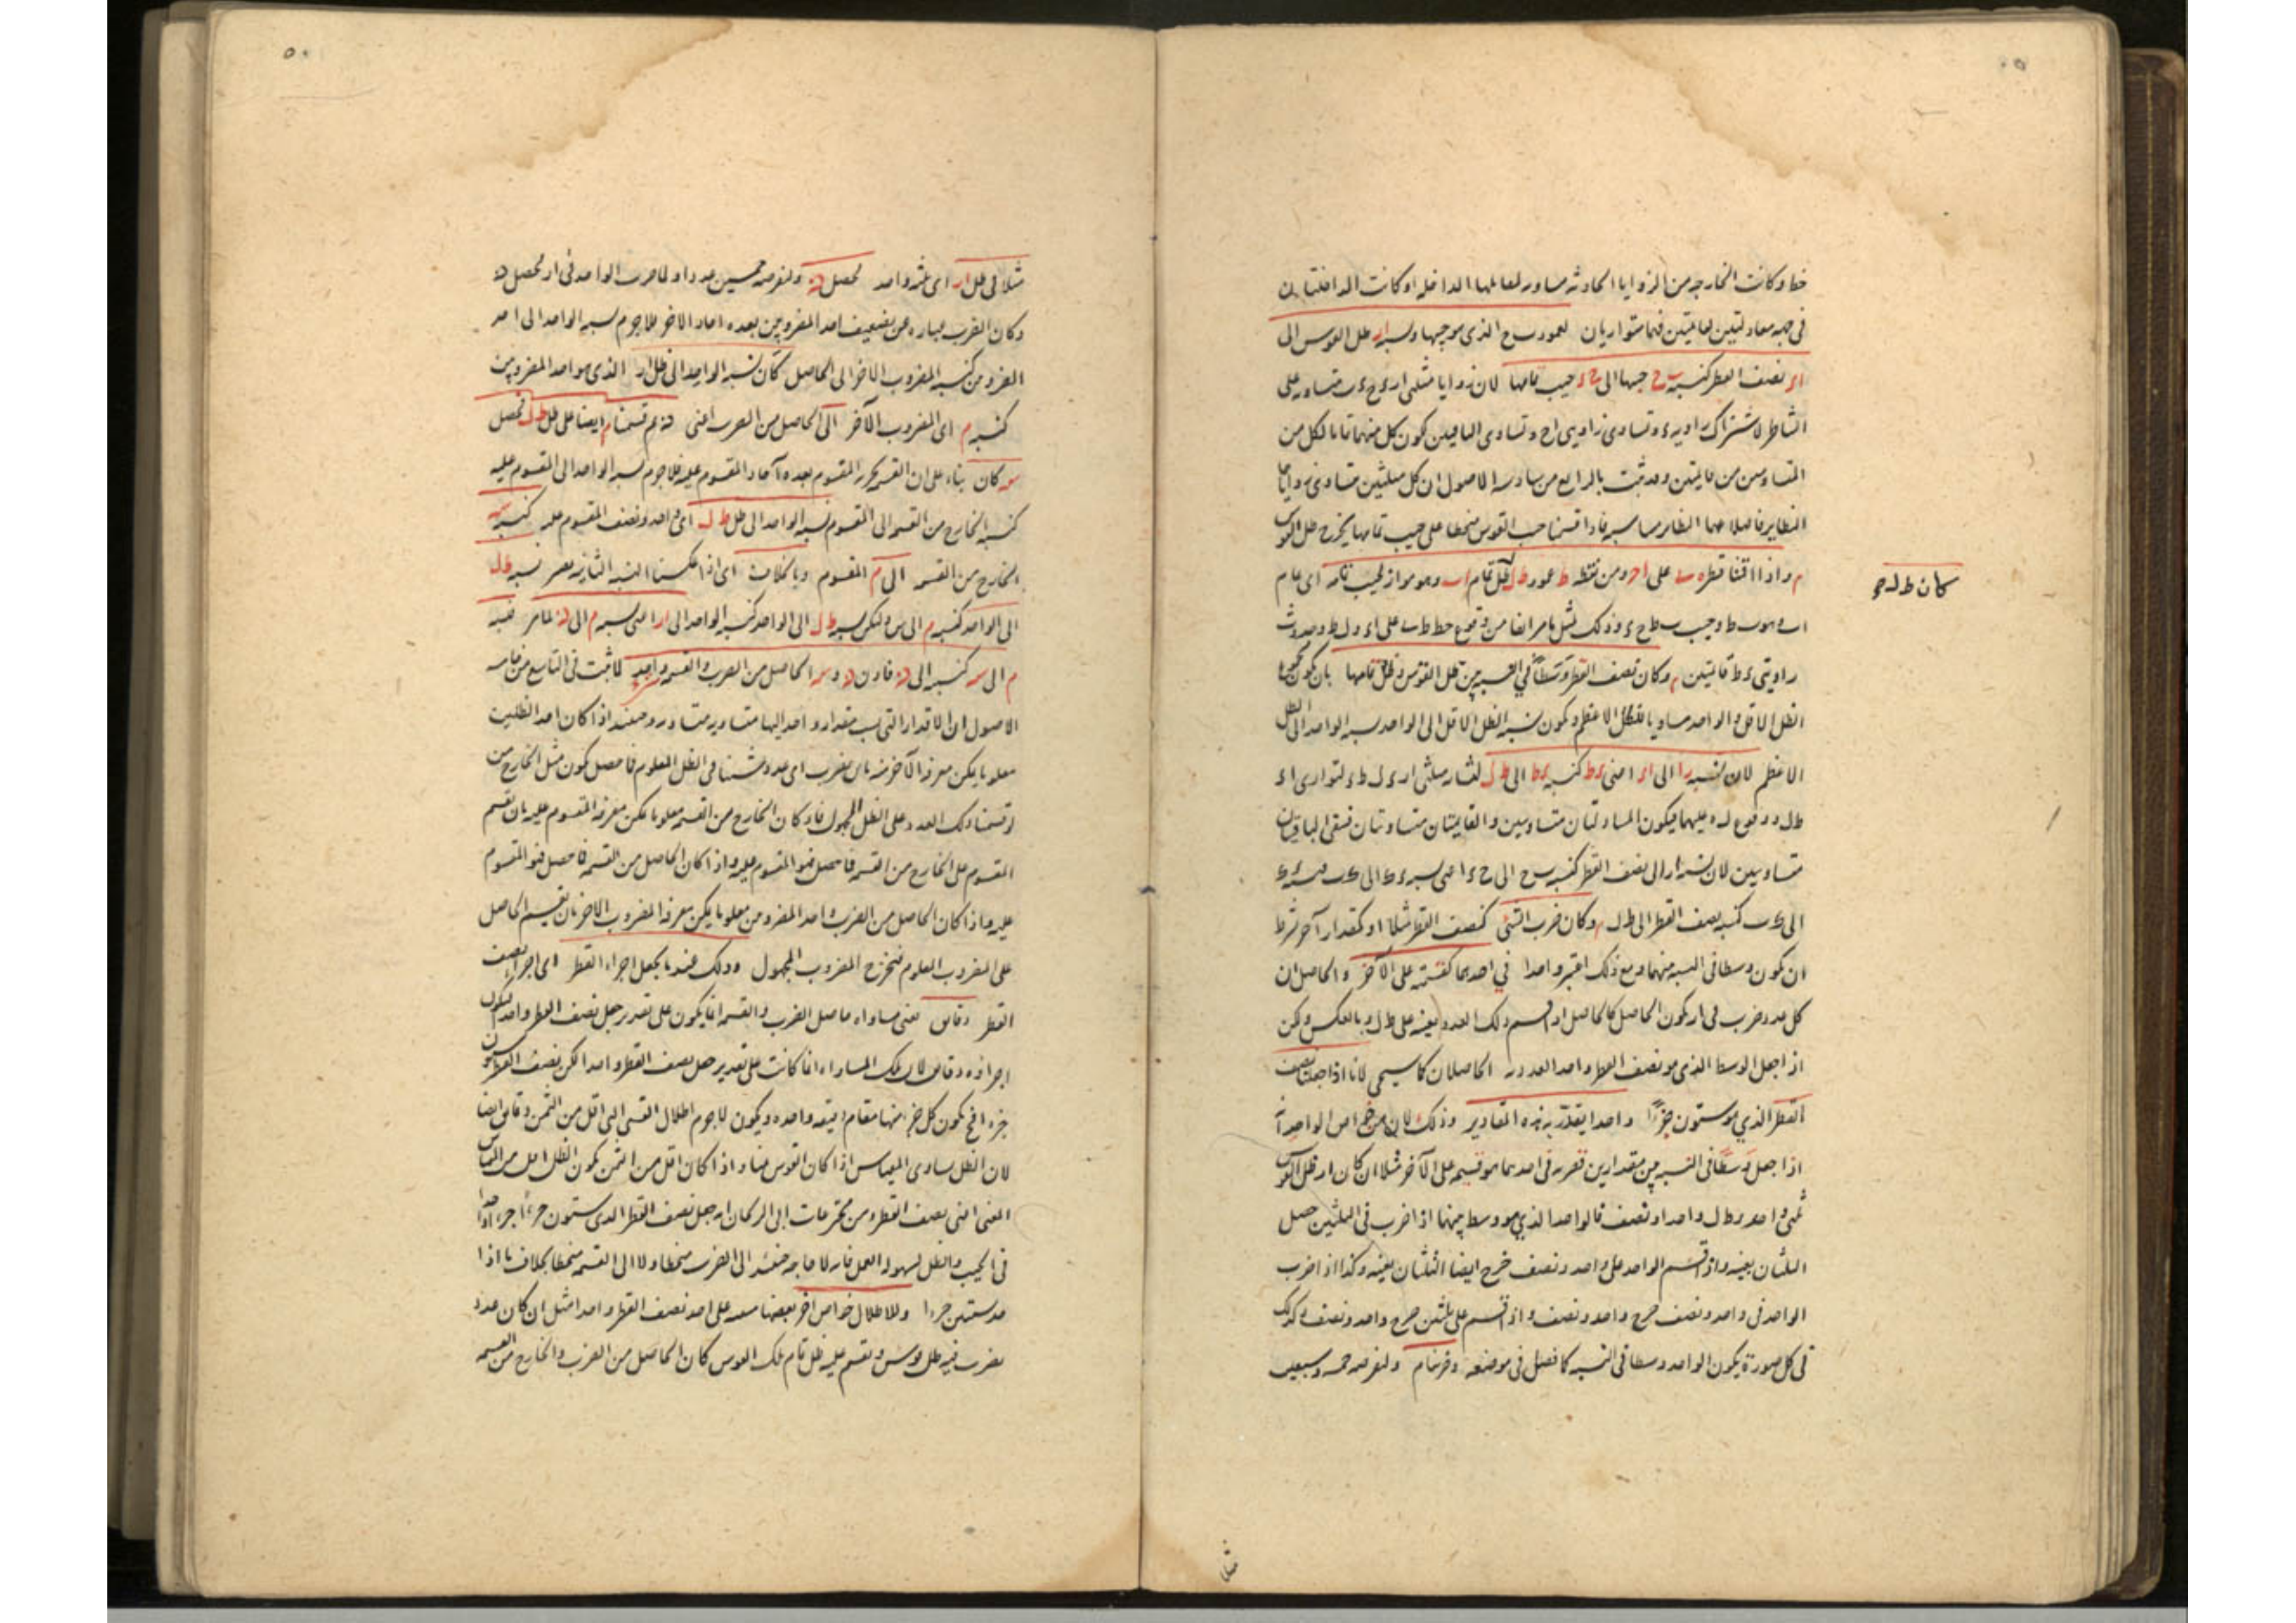 خط وكانت الخارجه من الزوايا الحادثه مساويه لمقابلها الداخله او كانت الداخلتان
فى جهه معادلتين لقائمتين فهما متوازيان لعمود الذى هو جيبها ونسبه ار ظل القوس الى
اء نصف القطر كنسبه جيبها الى ح ء جيب تمامها لان زوايا مثلثى متساويه على
التناظر لاشتراك زاويه ء وتساوى زاويتى ا ح وتساوى الباقيتين لكون كل منهما تماما لكل من
المتساويتين من قائمتين وقد ثبت بالرابع من سادسه الاصول ان كل مثلثين متساوى زواياهما
النظاير فاضلاعهما النظاير متناسبه فاذا قسمنا جيب القوس منحطا على جيب تمامها يخرج ظل القوس
م واذا اقمنا قطر على ومن نقطه ط عمود ط ل ظل تمام اب وهو مواز لجيب تمامه اى تمام
كان ط ل
اب وهو وجيب وذلك لمثل ما مر ايضا من وقوع خط على
زاويتى ء ط قائمتين وكان نصف القطر وسطا فى النسبه بين ظل القوس وظل تمامها بان يكون مجموع
الظل الاقل والواحد مساويا للظل الاعظم ويكون نسبه الظل الاقل الى الواحد نسبه الواحد الى الظل
الاعظم لان نسبه را الى اء اعنى ء ط كنسبه ء ط الى ط ل لتشابه مثلثى لتوازى اء
ط ل ووقوع عليهما فيكون المتبادلتان متساويتين والقائمتان متساويتان فبقى الباقيتان
متساويتين لان نسبه ار الى نصف القطر كنسبه الى ح ء اعنى نسبه الى
الى كنسبه نصف القطر الى ط ل وكان ضرب الشئ كنصف القطر مثلا او كمقدار آخر بشرط
ان يكون وسطا فى النسبه بينهما ومع ذلك اعتبر واحدا فى احدهما كقسمته على الآخر والحاصل ان
كل عدد ضرب فى ار يكون الحاصل كالحاصل اذا قسم ذلك العدد بعينه على ط ل وبالعكس ولكن
اذا جعل الوسط الذى هو نصف القطر واحدا الحاصلان كما سيجى لانا اذا جعلنا نصف
القطر الذي هو ستون جزءا واحدا يقدر به هذه المقادير وذلك لان من خواص الواحد انه
اذا جعل وسطا فى النسبه بين مقدارين فضربه فى احدهما هو قسمه على الآخر مثلا ان كان ار ظل القوس
ثلثى واحد وط ل واحدا ونصف فالواحد الذي هو وسط بينهما اذا ضرب فى الثلثين حصل
الثلثان بعينه واذا قسم الواحد على واحد ونصف خرج ايضا الثلثان بعينه وكذا اذا ضرب
الواحد فى واحد ونصف خرج واحد ونصف واذا قسم على ثلثين خرج واحد ونصف وكذلك
فى كل صورة يكون الواحد وسطا فى النسبه كما فصل فى موضعه وضربنا م ولنفرضه خمسه وسبعين
مثلا
مثلا فى ظل ار اى ثلثى واحد ليحصل ن ولنفرضه خمسين عددا ولما ضرب الواحد فى ار ليحصل
وكان الضرب عباره عن تضعيف احد المضروبين بعده احاد الاخر فلا جرم نسبه الواحد الى احد
المضروبين كنسبه المضروب الاخر الى الحاصل كان نسبه الواحد الى ظل ار الذى هو احد المضروبين
كنسبه م اى المضروب الآخر الى الحاصل من الضرب اعنى ن ثم قسمنا م ايضا على ظل ط ل ليحصل
سه كان بناء على ان القسمه تجزيه المقسوم بعده آحاد المقسوم عليه فلا جرم نسبه الواحد الى المقسوم عليه
كنسبه الخارج من القسمه الى المقسوم نسبه الواحد الى ظل ط ل اى واحد ونصف المقسوم عليه كنسبه سه
الخارج من القسمه الى م المقسوم وبالخلاف اى اذا عكسنا النسبه الثانيه يصير نسبه ط ل
الى الواحد كنسبه م الى س ولتكن نسبه ط ل الى الواحد كنسبه الواحد الى ار اعنى نسبه م الى ن لما مر فنسبه
م الى سه كنسبته الى ن فاذن ن و سه الحاصل من الضرب والقسمه واحد لما ثبت فى التاسع من خامسه
الاصول ان الاقدار التى نسب مقدار واحد اليها متساويه متساويه وحينئذ اذا كان احد الظلين
معلوما يمكن معرفه الآخر منه بان يضرب اى عدد شئنا فى الظل المعلوم فما حصل يكون مثل الخارج من
لو قسمنا ذلك العدد على الظل المجهول فاذ كان الخارج من القسمه معلوما يمكن معرفه المقسوم عليه بان نقسم
المقسوم على الخارج من القسمه فما حصل فهو المقسوم عليه واذا كان الحاصل من القسمه فما حصل فهو المقسوم
عليه واذا كان الحاصل من الضرب واحد المضروبين معلوما يمكن معرفه المضروب الاخر بان يقسم الحاصل
على المضروب المعلوم فيخرج المضروب المجهول وذلك عندما يجعل اجزاء القطر اى اجزاء نصف
القطر دقايق يعنى مساواه حاصل الضرب والقسمه انما يكون على تقدير جعل نصف القطر واحدا ليكون
اجزاؤه دقايق لان تلك المساواه انما كانت على تقدير جعل نصف القطر واحدا لكن نصف القطر ستون
جزءا فيكون كل جزء منها مقام دقيقه واحده ويكون لا جرم اظلال القسى التى اقل من الثمن دقايق ايضا
لان الظل يساوى المقياس اذا كان القوس ثمنا واذا كان اقل من الثمن يكون الظل اقل من المقياس
اعنى نصف القطر ومن مخترعات ابى الريحان انه جعل نصف القطر الذى ستون جزءا جزءا واحدا
فى الجيب والظل لسهوله العمل فانه لا حاجه حينئذ الى الضرب منحطا ولا الى القسمه منحطا بخلاف ما اذا
عد ستين جزءا وللاظلال خواص اخر بعضها على اخذ نصف القطر واحدا مثل ان كان عدد
يضرب فيه ظل قوس ويقسم عليه ظل تمام تلك القوس كان الحاصل من الضرب والخارج من القسمه